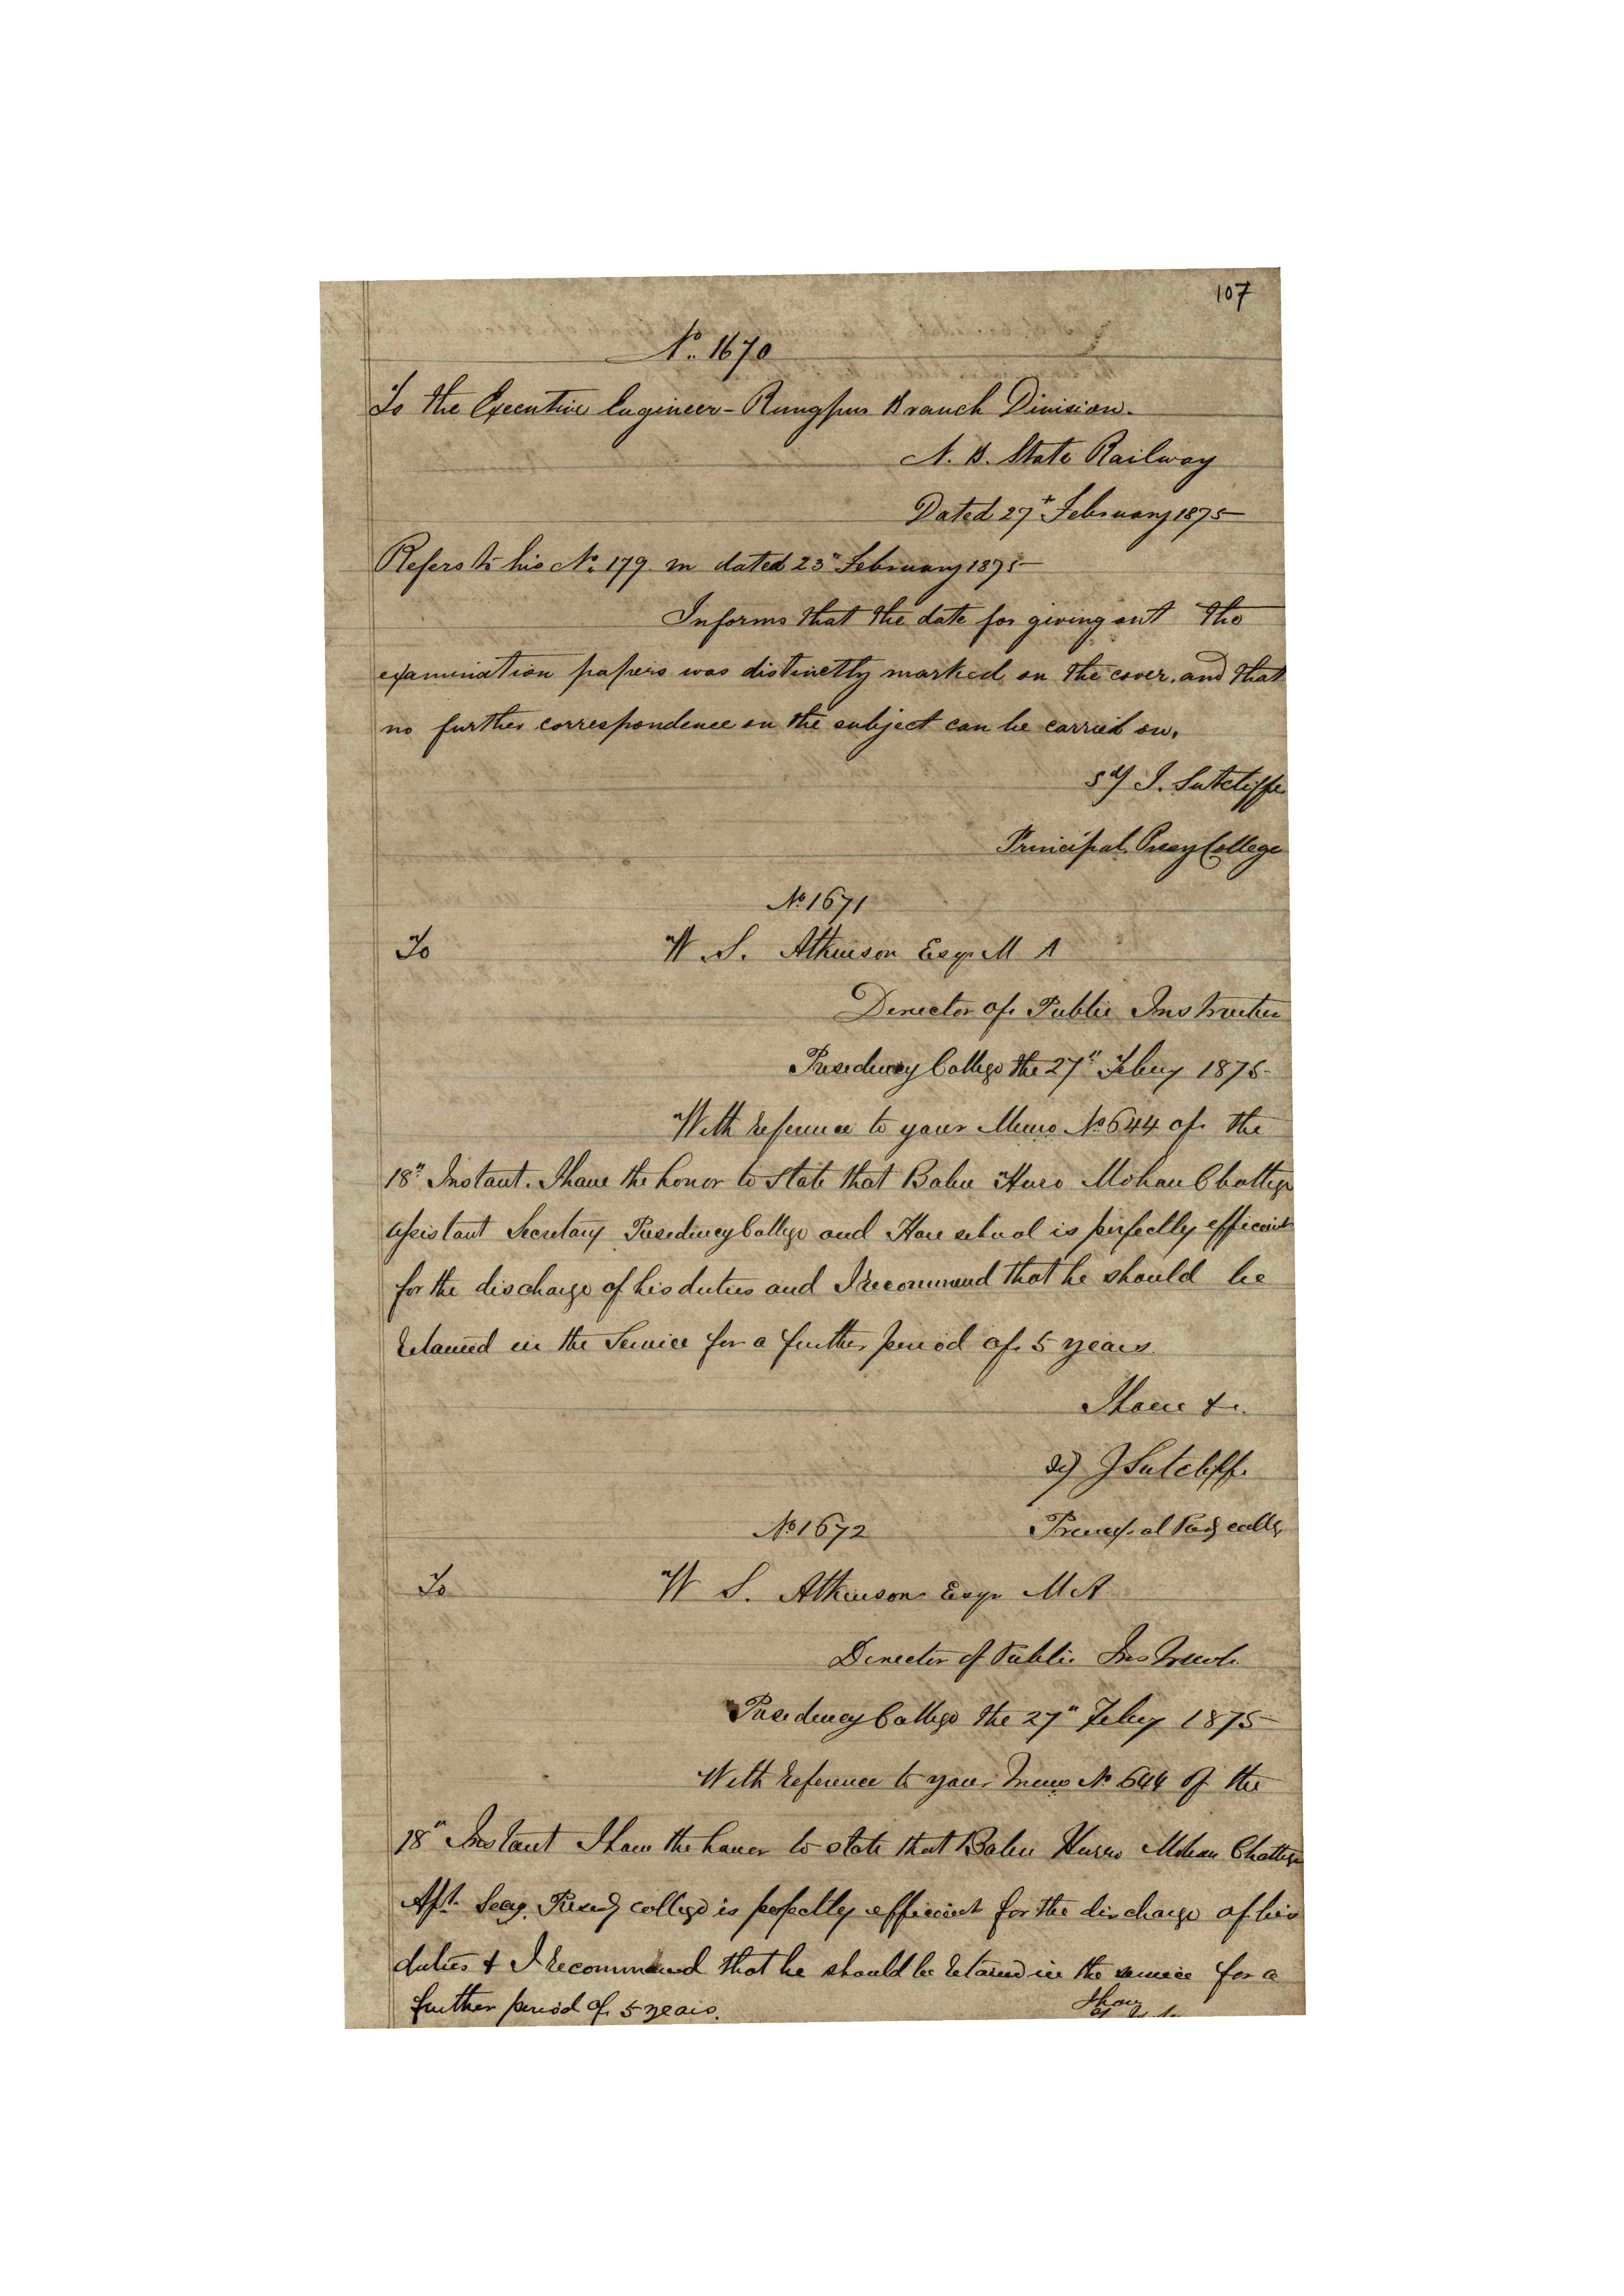 107
No. 1670
To the Executive Engineer - Rungpur Branch Division.
N. B. State Railway
Dated 27th February 1875
Refers to his No. 179 m dated 23rd February 1875
Informs that the date for giving out the
examination papers was distinctly marked on the cover, and that
no further correspondence on the subject can be carried on.
Sd/ J. Sutcliffe
Principal. Presy College
No 1671
To W. S. Atkinson Esqr. M A
Director of Public Instruction
Presidency College the 27th Feby 1875
With reference to your Memo No 644 of the
18th Instant. I have the honor to state that Babu Huro Mohan Chatterje
Assistant Secretary Presidency College and Hare school is perfectly efficient
for the discharge of his duties and I recommend that he should be
retained in the Service for a further period of 5 years.
I have &c.
Sd) J Sutcliffe
No 1672 Principal Presy colle
To W S. Atkinson Esqr M A
Director of Public Instruct
Presidency College the 27th Feby 1875
With reference to your memo No 644 of the
18th Instant I have the honor to state that Babu Hurro Mohan Chatterje
Asst. Secy. Presdy college is perfectly efficient for the discharge of his
duties & I recommend that he should be retained in the service for a
further period of 5 years. I have